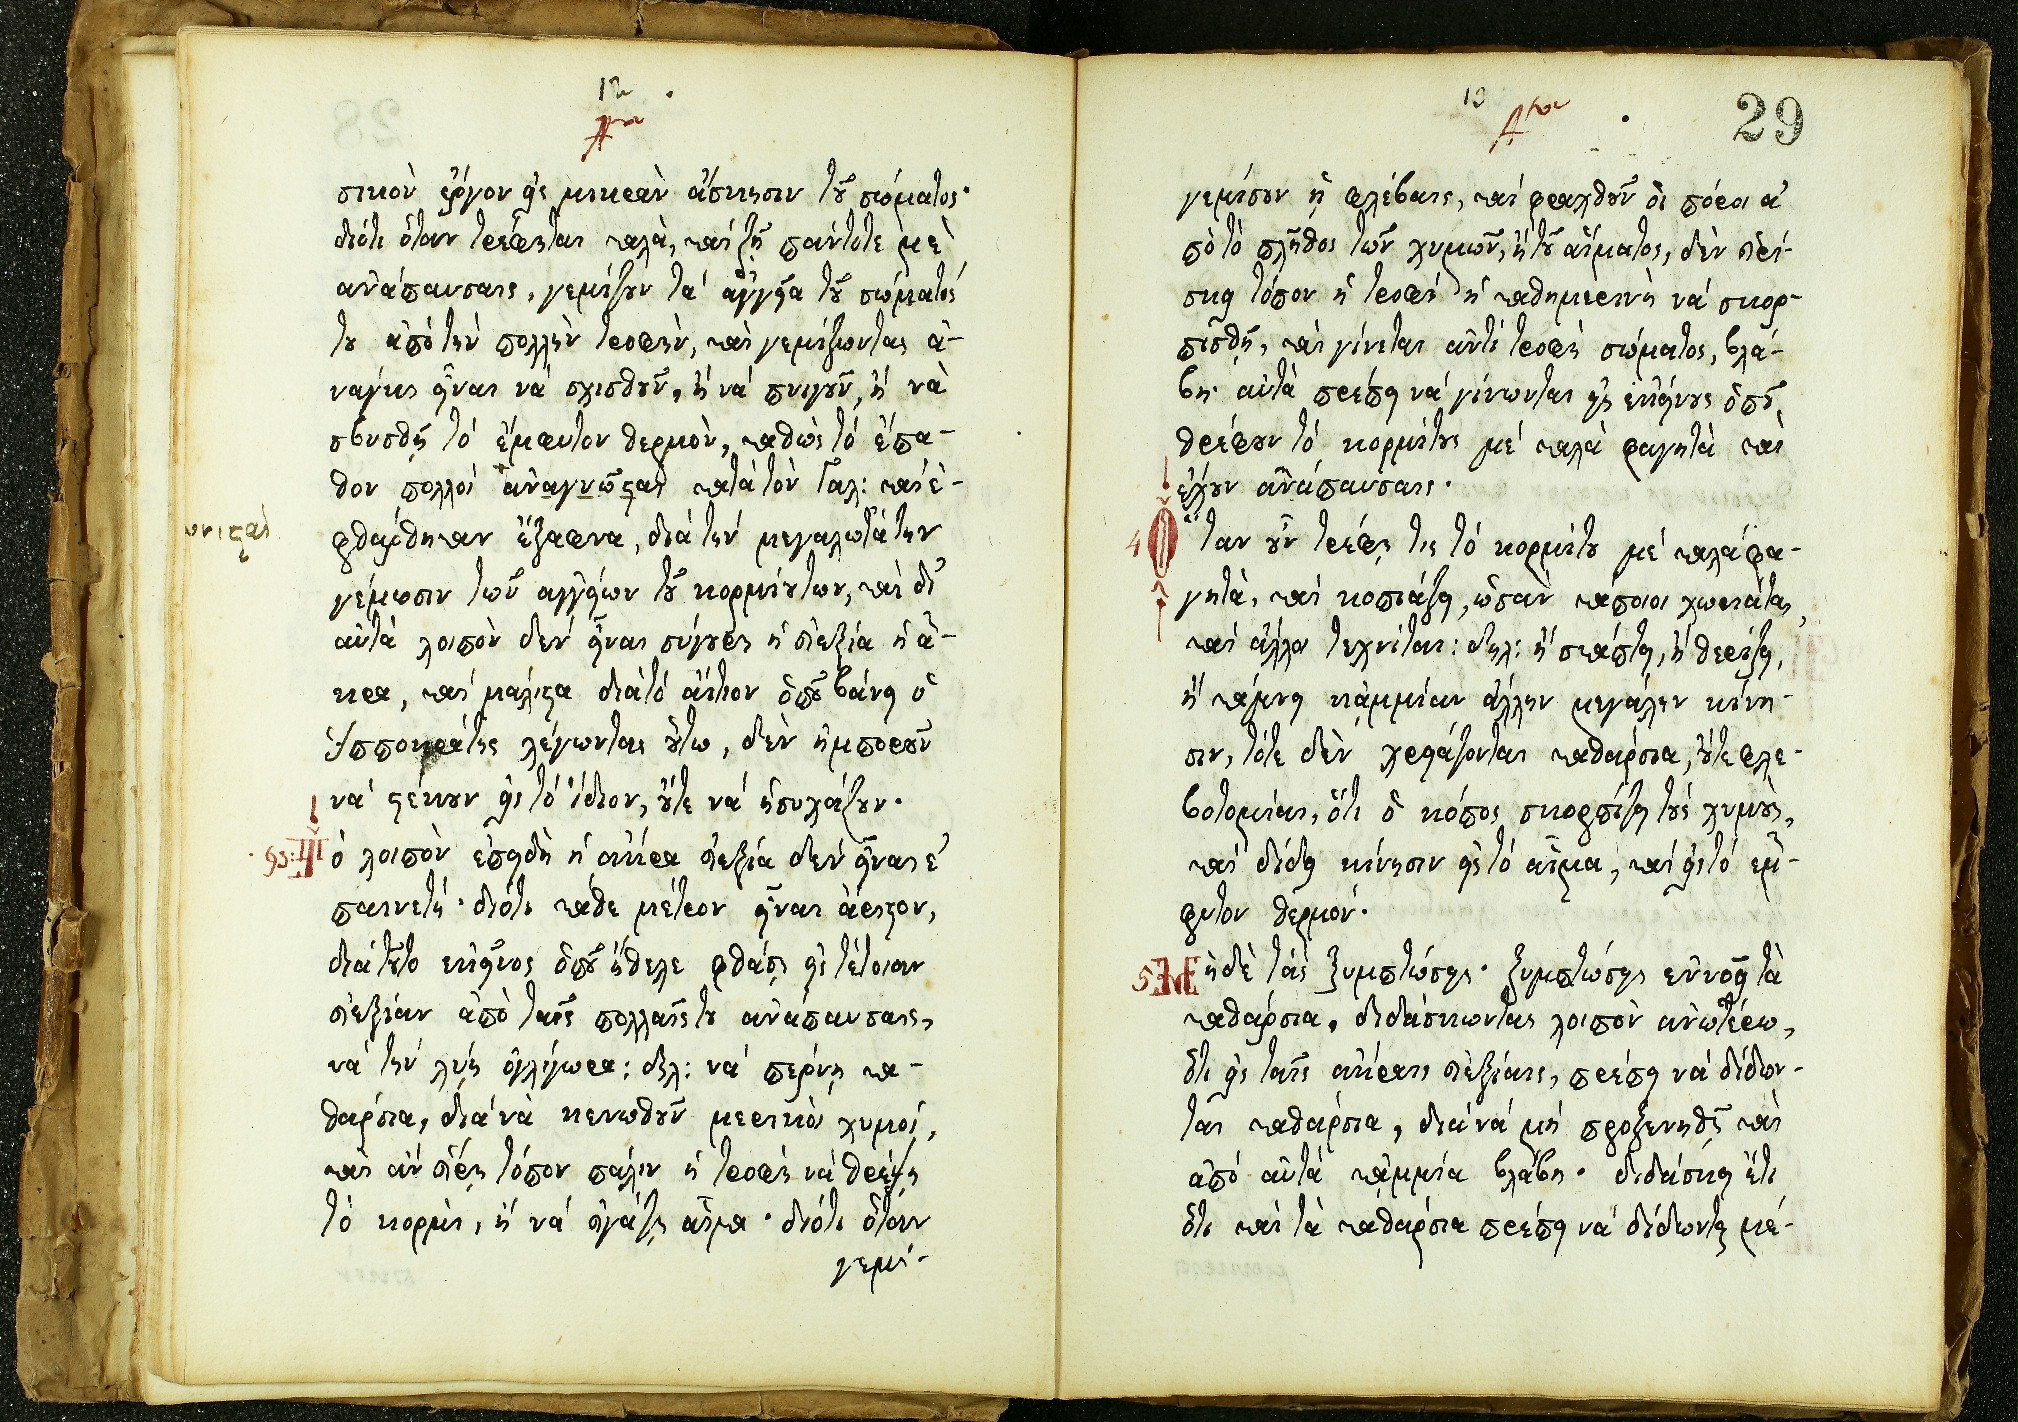 12
Αον
σικὸν ἔργον εἰς μικρὰν ἄσκησιν τοῦ σώματος·
διότι ὅταν τρέφηται καλὰ, καὶ ζῇ πάντοτε μὲ
ἀνάπαυσαις, γεμίζουν τὰ ἀγγεῖα τοῦ σώματός
του ἀπὸ τὴν πολλὴν τροφὴν, καὶ γεμίζωντας ἀ-
νάγκη εἶναι νὰ σχισθοῦν, ἢ νὰ πνιγοῦν, ἢ νὰ
σβυσθῇ τὸ ἔμφυτον θερμὸν, καθὼς τὸ ἔπα-
θον πολλοὶ ἀναγνῶσται κατὰ τὸν Γαλ: καὶ ἐ-
νισταὶ
φθάρθηκαν ἔξαφνα, διὰ τὴν μεγαλωτάτην
γέμωσιν τῶν ἀγγείων τοῦ κορμίου των, καὶ δι'
αὐτὰ λοιπὸν δὲν εἶναι σίγουρη ἡ εὐεξία ἡ ἄ-
κρα, καὶ μάλιστα διὰ τὸ αἴτιον ὁποῦ βάνει ὁ
Ἱπποκράτης λέγωντας οὕτω, δὲν ἠμποροῦν
νὰ στέκουν εἰς τὸ ἴδιον, οὔτε νὰ ἡσυχάζουν.
93: Πὸ λοιπὸν ἐπειδὴ ἡ ἄκρα εὐεξία δὲν εἶναι ἐ
παινετή· διότι κάθε μέτρον εἶναι ἄριστον,
διὰ τοῦτο ἐκεῖνος ὁποῦ ἤθελε φθάσῃ εἰς τέτοιαν
εὐεξίαν ἀπὸ ταῖς πολλαῖς του ἀνάπαυσαις,
νὰ τὴν λύῃ ὀγλίγωρα: δηλ: νὰ περνῇ κα-
θάρσια, διὰ νὰ κενωθοῦν μερικοὶ χυμοί,
καὶ ἂν εὕρῃ τόπον πάλιν ἡ τροφὴ νὰ θρέψῃ
τὸ κορμὶ, ἢ νὰ εὐγάζῃ αἷμα· διότι ὅταν
γεμί-
13
Αον
29
γεμίσουν ἡ φλέβαις, καὶ φραχθοῦν οἱ πόροι ἀ
πὸ τὸ πλῆθος τῶν χυμῶν, ἢ τοῦ αἵματος, δὲν εὑρί-
σκει τόπον ἡ τροφὴ ἡ καθημερινὴ νὰ σκορ-
πισθῇ, καὶ γίνεται ἀντὶ τροφὴ σώματος, βλά-
βη· αὐτὰ πρέπει νὰ γίνωνται εἰς ἐκείνους ὁποῦ
θρέφουν τὸ κορμί τους μὲ καλὰ φαγητὰ καὶ
ἔχουν ἀνάπαυσαις.
4 Ὅταν οὖν τρέφῃ τις τὸ κορμί του μὲ καλὰ φα-
γητὰ, καὶ κοπιάζει, ὡσὰν κάποιοι χωριάται,
καὶ ἄλλοι τεχνίται: δηλ: ἢ σκάπτει, ἢ θερίζει,
ἢ κάμνει κἀμμίαν ἄλλην μεγάλην κίνη-
σιν, τότε δὲν χρειάζονται καθάρσια, οὔτε φλε-
βοτομίαι, ὅτι ὁ κόπος σκορπίζει τοὺς χυμοὺς,
καὶ δίδει κίνησιν εἰς τὸ αἷμα, καὶ εἰς τὸ ἔμ-
φυτον θερμόν.
5 Μηδὲ τὰς ξυμπτώσηες· ξυμπτώσηες ἐννοεῖ τὰ
καθάρσια, διδάσκωντας λοιπὸν ἀνωτέρω,
ὅτι εἰς ταῖς ἄκραις εὐεξίαις, πρέπει νὰ δίδων-
ται καθάρσια, διὰ νὰ μὴ προξενηθῇ καὶ
ἀπὸ αὐτὰ κἀμμία βλάβη. διδάσκει ἔτι
ὅτι καὶ τὰ καθάρσια πρέπει νὰ δίδωνται μέ-